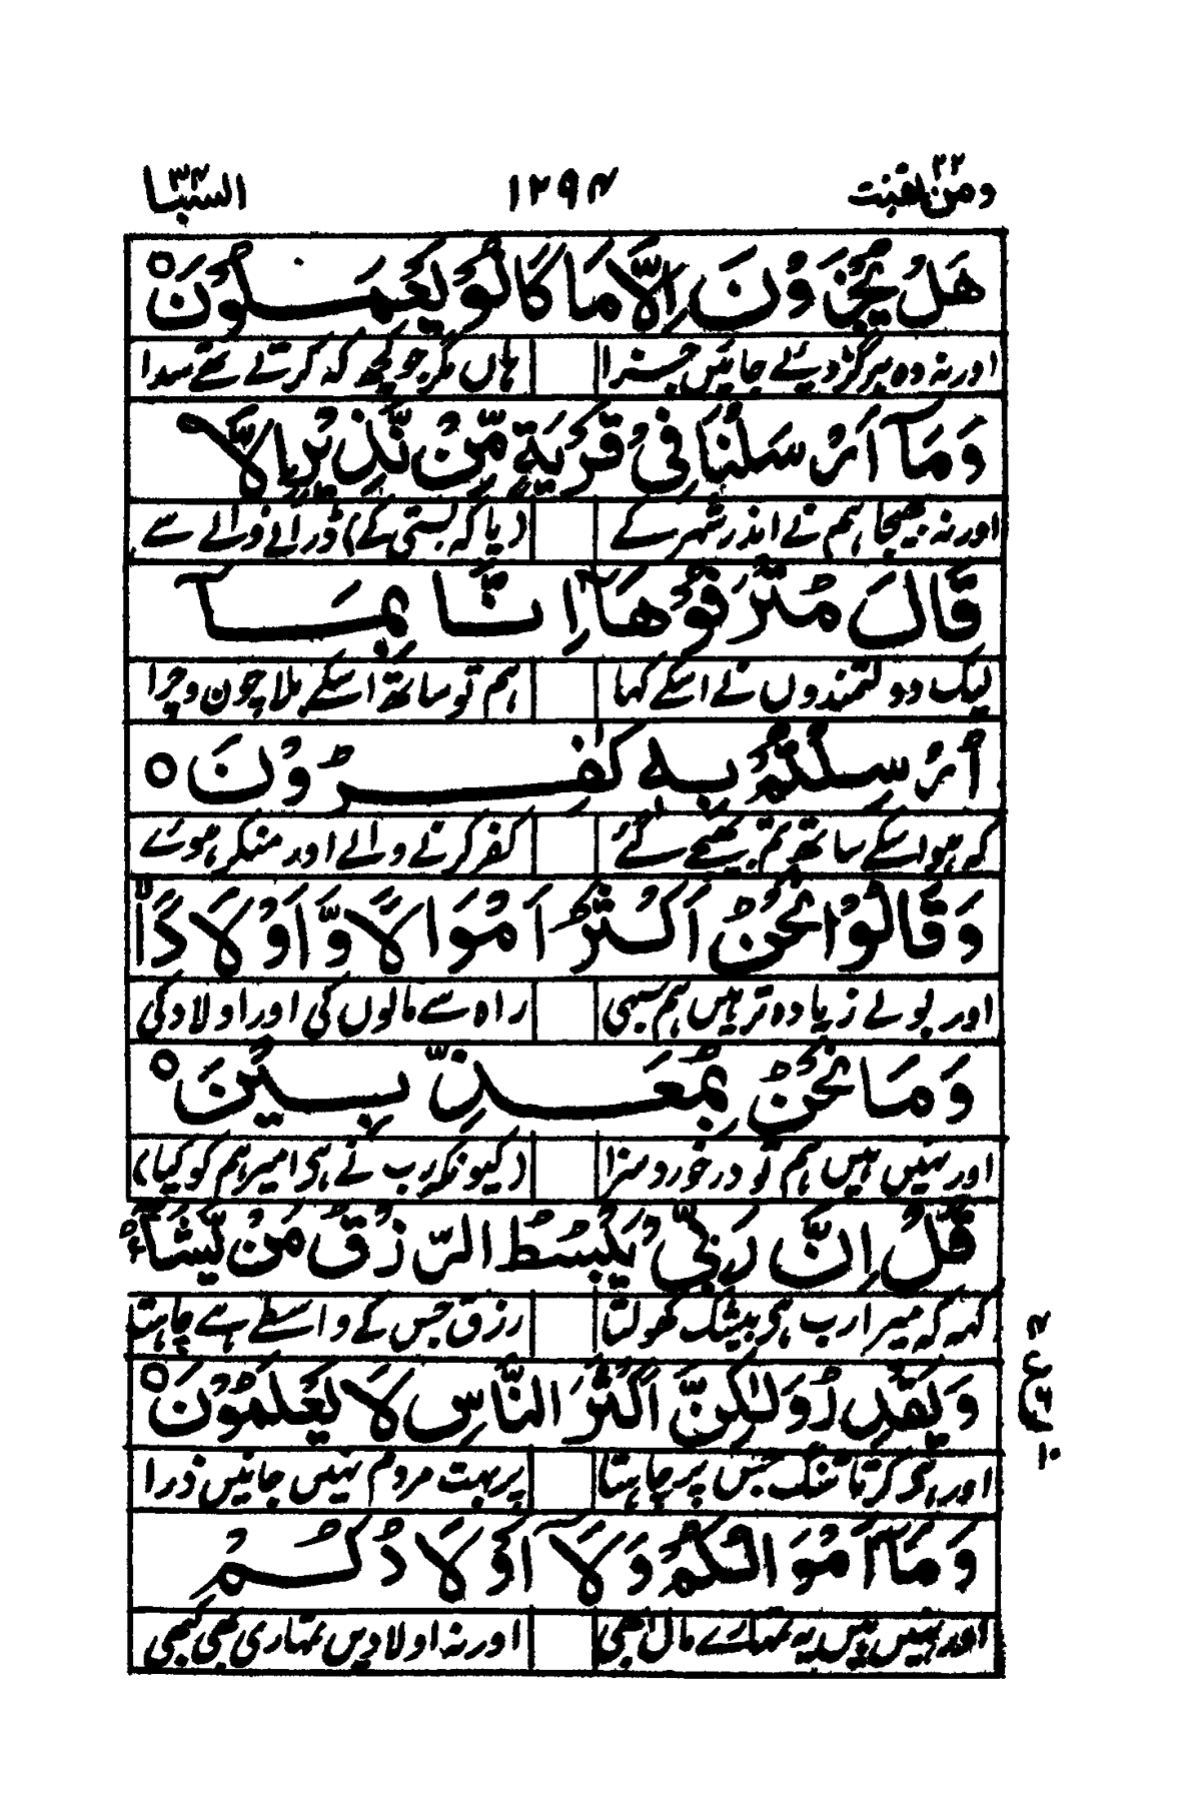 ومن یقنت ۲۲ ۱۲۹۴ السبا ۳۴
هَلْ يُجْزَوْنَ اِلَّا مَا كَانُوْ يَعْمَلُوْنَ ○
اور نہ وہ ہرگز دیئے جائیں جزا ہاں مگر جو کچھ کہ کرتے تھے سدا
وَمَآ اَرْسَلْنَا فِيْ قَرْيَةٍ مِّنْ نَّذِيْرٍ اِلَّا
اور نہ بھیجا ہم نے اندر شہر کے (یا کہ بستی کے) ڈرانے والے سے
قَالَ مُتْرَفُوْهَآ اِنَّا بِمَآ
لیک دولتمندوں نے اسکے کہا ہم تو ساتھ اسکے بلا چون وچرا
اُرْسِلْتُمْ بِهٖ كٰفِرُوْنَ ○
کہ ہو اسکے ساتھ تم بھیجے گئے کفر کرنے والے اور منکر ہوئے
وَقَالُوْا نَحْنُ اَكْثَرُ اَمْوَالًا وَّاَوْلَادًا
اور بولے زیادہ تر ہیں ہم سبھی راہ سے مالوں کی اور اولاد کی
وَمَا نَحْنُ بِمُعَذَّبِيْنَ ○
اور نہیں ہیں ہم تو درخورد سزا (کیونکہ رب نے ہی امیر ہم کو کیا)
قُلْ اِنَّ رَبِّيْ يَبْسُطُ الرِّزْقَ مَنْ يَّشَآءُ
کہہ کہ میرا رب ہی بیشک کھولتا رزق جس کے واسطے ہے چاہتا
وَيَقْدِرُ وَلٰكِنَّ اَكْثَرَ النَّاسِ لَا يَعْلَمُوْنَ ○
۴
ع
۶
۱۰
اور ہی کرتا تنگ جس پر چاہتا پر بہت مردم نہیں جانیں ذرا
وَمَآ اَمْوَالُكُمْ وَلَآ اَوْلَادُكُمْ
اور نہیں ہیں یہ تمہارے مال بھی اور نہ اولادیں تمہاری بھی کبھی